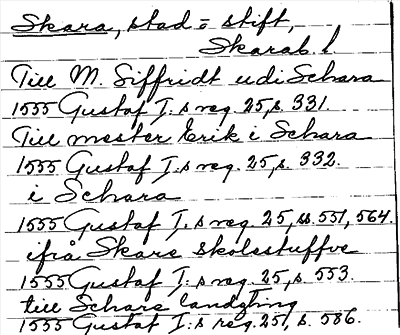 Skara, stad = stift,
Skarab. l.
Till M. Siffridt udi Schara
1555 Gustaf I:s reg. 25, s. 331.
Till mester Erik i Schara
1555 Gustaf I:s reg. 25, s. 332.
i Schara
1555 Gustaf I:s reg. 25, ss. 551, 564.
ifrå Skare skolestuffve
1555 Gustaf I:s reg. 25, s. 553.
till Schare landzting
1555 Gustaf I:s reg. 25, s. 586.